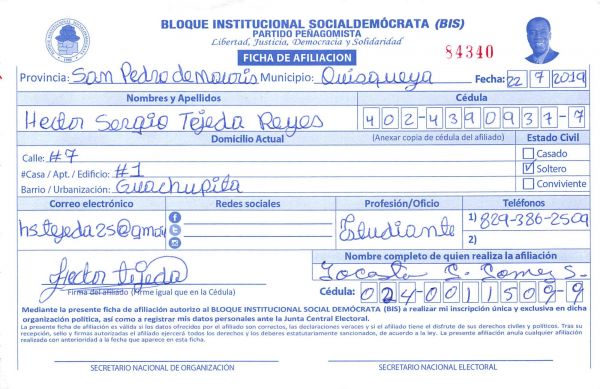 BLOQUE INSTITUCIONAL SOCIALDEMÓCRATA (BIS)
PARTIDO PEÑAGOMISTA
Libertad, Justicia, Democracia y Solidaridad
FICHA DE AFILIACION
84340
Provincia: San Pedro de Macoris Municipio: Quisqueya Fecha: 22 7 2019
Nombres y Apellidos Cédula
Hector Sergio Tejeda Reyes 402-4390937-7
Domicilio Actual (Anexar copia de cédula del afiliado) Estado Civil
Calle: #7 Casado
#Casa / Apt. / Edificio: #1 Soltero
Barrio / Urbanización: Guachupita Conviviente
Correo electrónico Redes sociales Profesión/Oficio Teléfonos
hstejeda25@gmai Estudiante 1) 829-386-2509
2)
Nombre completo de quien realiza la afiliación
Hector tejeda
Firma del afiliado (Firme igual que en la Cédula) Cédula: 024-0011509-9
Mediante la presente ficha de afiliación autorizo al BLOQUE INSTITUCIONAL SOCIAL DEMÓCRATA (BIS) a realizar mi inscripción única y exclusiva en dicha
organización política, así como a registrar mis datos personales ante la Junta Central Electoral.
La presente ficha de afiliación es válida si los datos ofrecidos por el afiliado son correctos, las declaraciones veraces y si el afiliado tiene el disfrute de sus derechos civiles y políticos. Tras su
recepción, sello y firmas autorizadas el afiliado ejercerá todos los derechos y los deberes estatutariamente sancionados, de acuerdo a la ley. La presente afiliación anula cualquier afiliación
realizada con anterioridad a la fecha que aparece en esta ficha.
SECRETARIO NACIONAL DE ORGANIZACIÓN SECRETARIO NACIONAL ELECTORAL